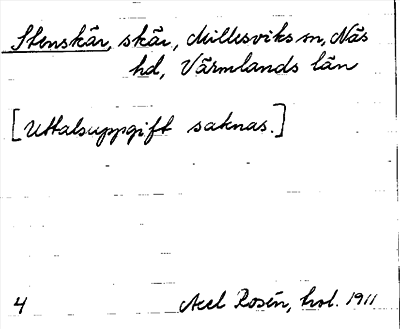 Stenskär, skär, Millesviks sn, Näs
hd, Värmlands län
[Uttalsuppgift saknas.]
4
Axel Rosén, hol. 1911